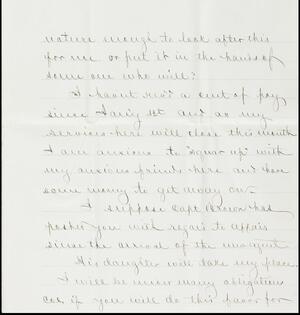 nature enough to look after this
for me or put it in the hands of
some one who will?
I havent rec'd a cent of pay
since I and as my
services here will close this month
I am anxious to "squar up" with
my anxious friends here and have
some money to get away on—
I suppose Capt Brown has
posted you with regard to affairs
since the arrival of the
His daughter will take my place
I will be under many obligations
Col. if you will do this favor for